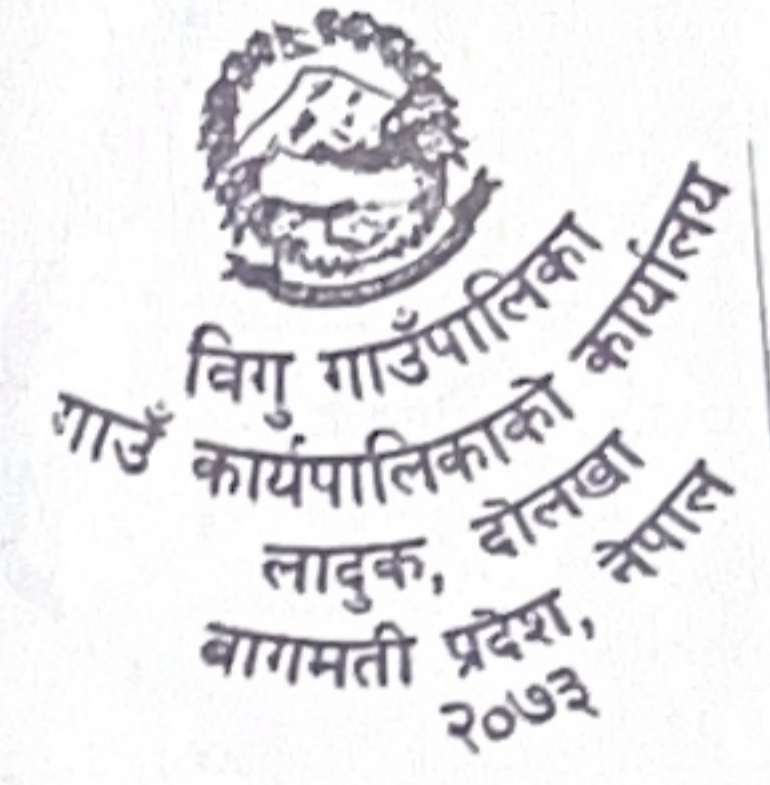 विगु गाउँपालिका
गाउँ कार्यपालिकाको कार्यालय
लादुक, दोलखा
बागमती प्रदेश, नेपाल
२०७३